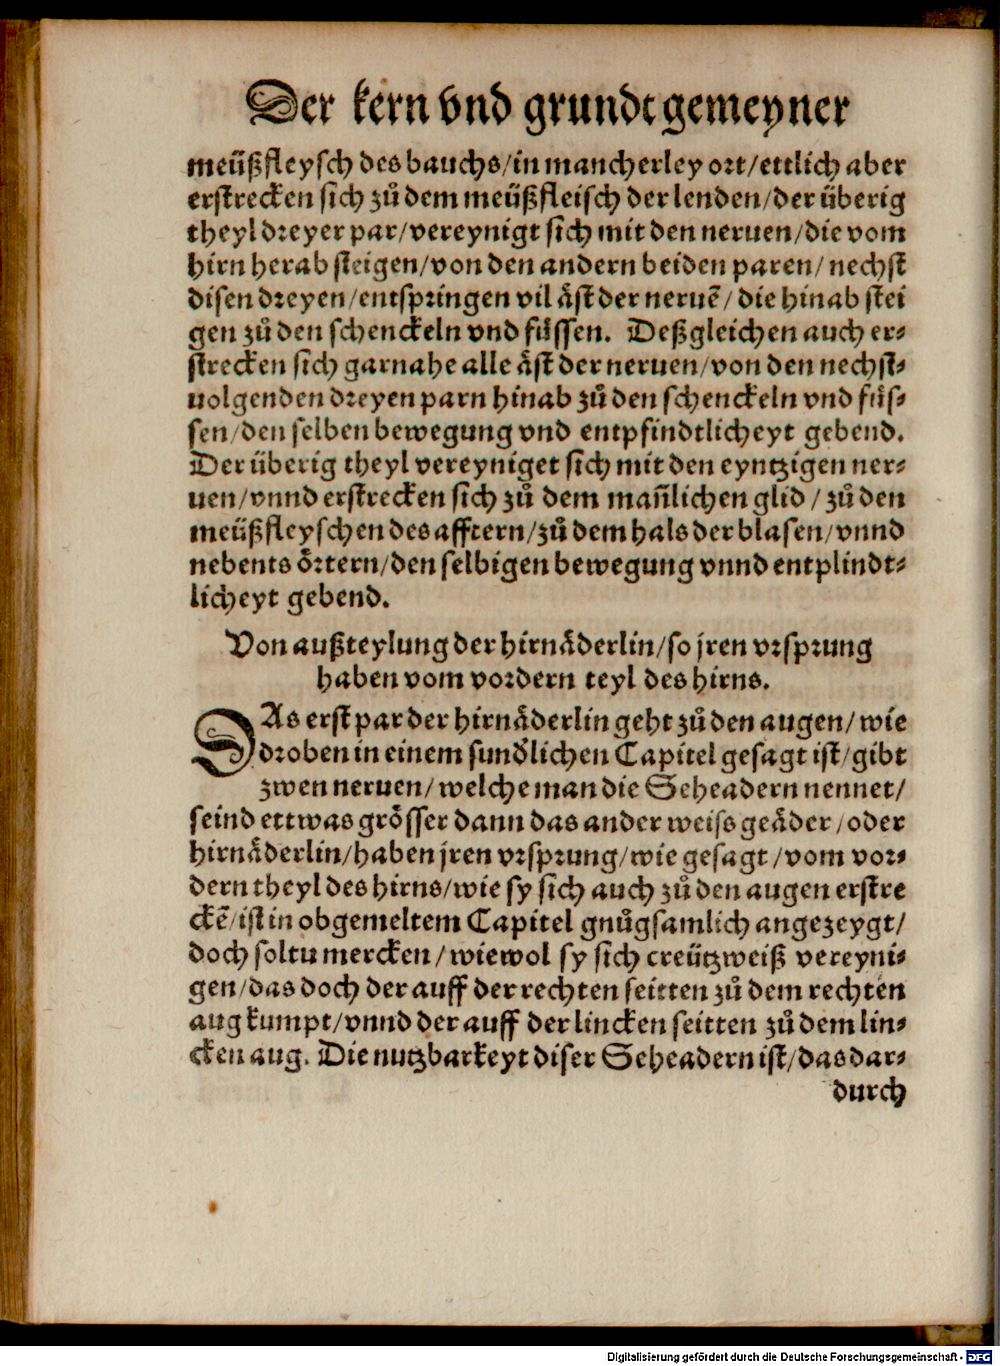 Der kern vnd grundt gemeyner
meüßfleysch des bauchs/in mancherley ort/ettlich aber
erstrecken sich zů dem meüßfleisch der lenden/der überig
theyl dreyer par/vereynigt sich mit den neruen/die vom
hirn herab steigen/von den andern beiden paren/nechst
disen dreyen/entspringen vil äst der neruē/die hinab stei
gen zů den schenckeln vnd füssen. Deßgleichen auch er-
strecken sich garnahe alle äst der neruen/von den nechst-
uolgenden dreyen parn hinab zů den schenckeln vnd füs-
sen/den selben bewegung vnd entpfindtlicheyt gebend.
Der überig theyl vereyniget sich mit den eyntzigen ner-
uen/vnnd erstrecken sich zů dem mañlichen glid/zů den
meüßfleyschen des afftern/zů dem hals der blasen/vnnd
nebents örtern/den selbigen bewegung vnnd entplindt-
licheyt gebend.
Von außteylung der hirnäderlin/so jren vrsprung
haben vom vordern teyl des hirns.
DAs erst par der hirnäderlin geht zů den augen/wie
droben in einem sundlichen Capitel gesagt ist/gibt
zwen neruen/welche man die Seheadern nennet/
seind ettwas grösser dann das ander weiss geäder/oder
hirnäderlin/haben jren vrsprung/wie gesagt/vom vor-
dern theyl des hirns/wie sy sich auch zů den augen erstre
ckē/ist in obgemeltem Capitel gnůgsamlich angezeygt/
doch soltu mercken/wiewol sy sich creützweiß vereyni-
gen/das doch der auff der rechten seitten zů dem rechten
aug kumpt/vnnd der auff der lincken seitten zů dem lin-
cken aug. Die nutzbarkeyt diser Seheadern ist/das dar-
durch
Digitalisierung gefördert durch die Deutsche Forschungsgemeinschaft - DFG